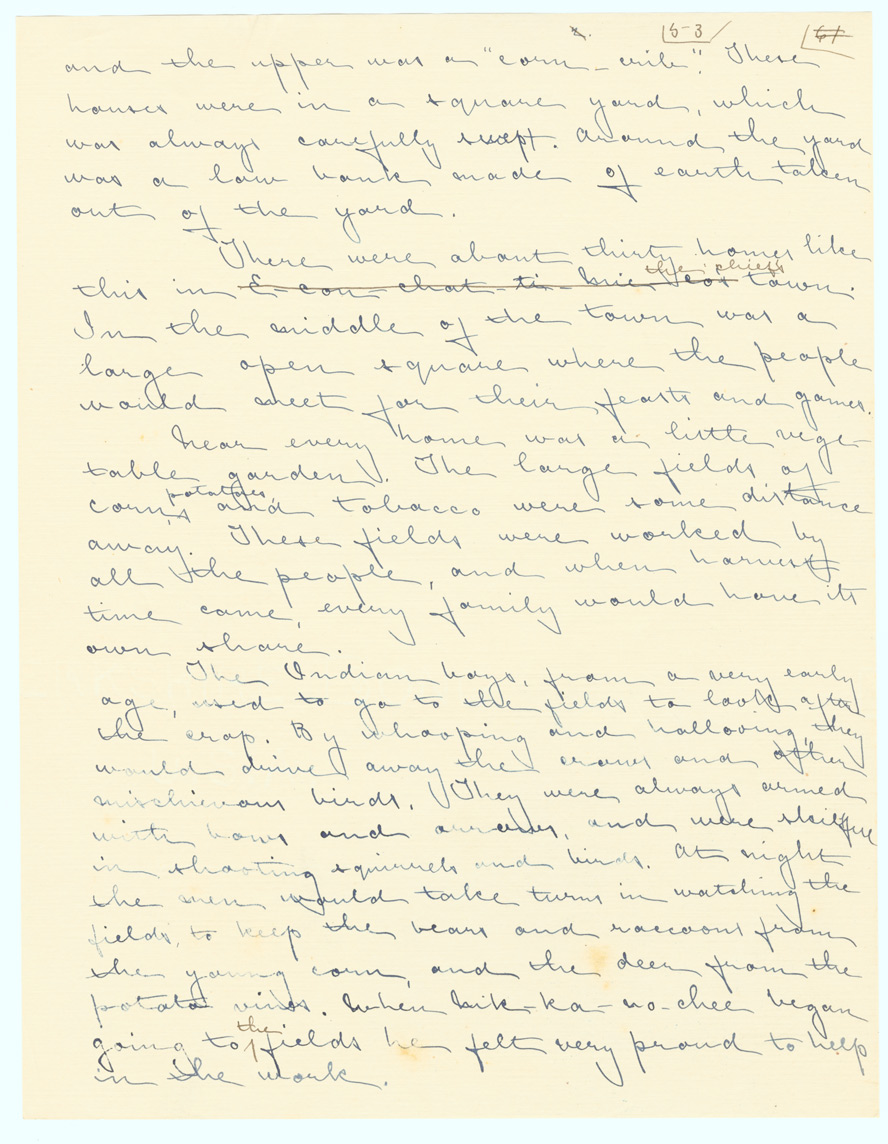 5-3 61
and the upper was a "corn-crib". These
houses were in a square yard, which
was always carefully swept. Around the yard
was a low bank made of earth taken
out of the yard.
There were about thirty homes like
the chief's
this in E-con-chat-ti-mic-co's town.
In the middle of the town was a
large open square where the people
would meet for their feasts and games.
Near every home was a little vege-
table garden. The large fields of
potatoes,
corn, and tobacco were some distance
away. These fields were worked by
all the people, and when harvest
time came, every family would have its
own share.
The Indian boys, from a very early
age, used to go to the fields to look after
the crop. By whooping and hallooing, they
would drive away the crows and other
mischievous birds. They were always armed
with bows and arrows, and were skillful
in shooting squirrels and birds. At night
the men would take turns in watching the
fields, to keep the bears and raccoons from
the young corn, and the deer from the
potato vines. When Nik-ka-no-chee began
the
going to fields he felt very proud to help
in the work.